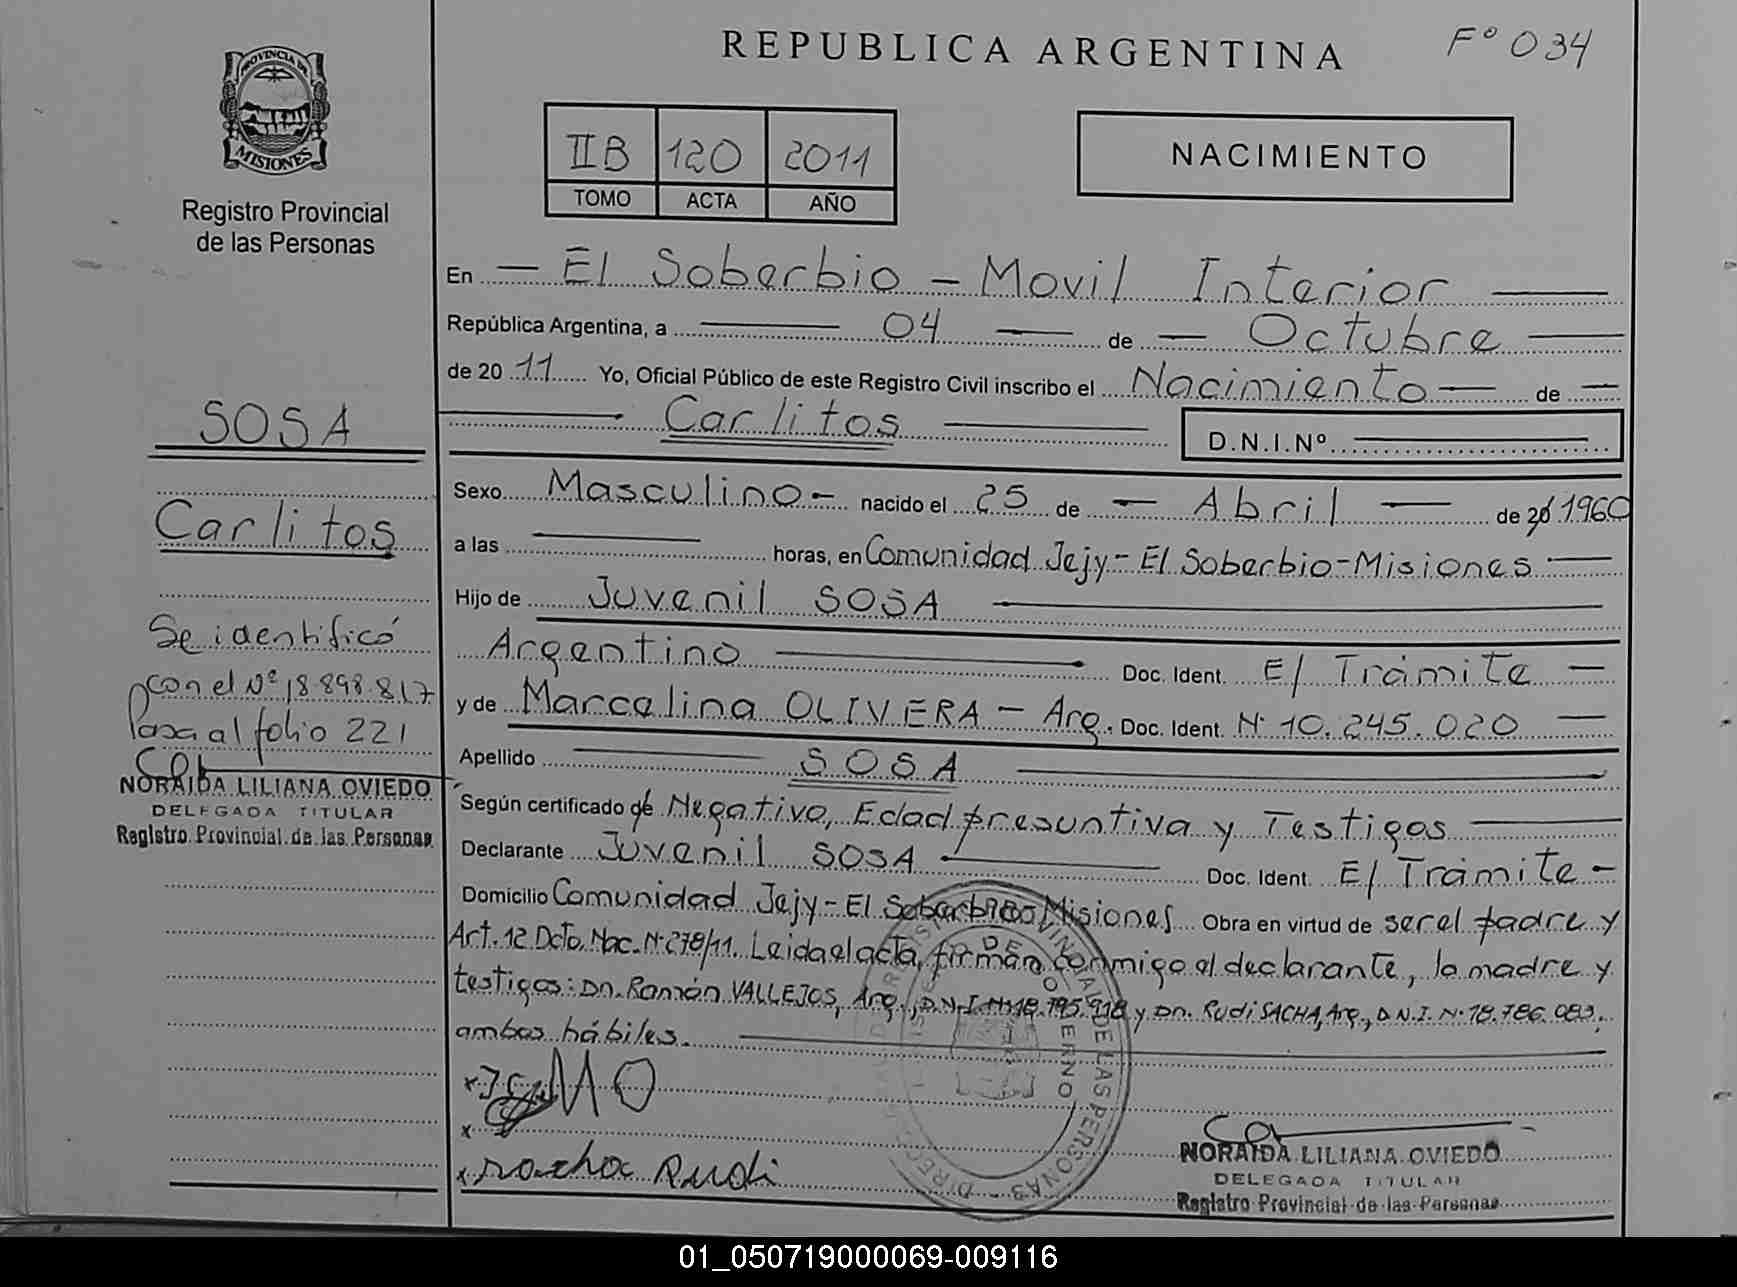 REPUBLICA ARGENTINA
Fº 034
PROVINCIA DE
MISIONES
Registro Provincial
de las Personas
IIB 120 2011
TOMO ACTA AÑO
NACIMIENTO
En El Soberbio - Movil Interior
República Argentina, a 04 de Octubre
de 2011 Yo, Oficial Público de este Registro Civil inscribo el Nacimiento de
Carlitos
D.N.I.Nº
SOSA
Carlitos
Se identificó
con el Nº 18.898.817
Pasa al folio 221
NORAIDA LILIANA OVIEDO
DELEGADA TITULAR
Registro Provincial de las Personas
Sexo Masculino - nacido el 25 de Abril de 20 1960
a las horas, en Comunidad Jejy - El Soberbio - Misiones
Hijo de Juvenil SOSA
Argentino Doc. Ident. E/ Trámite
y de Marcelina OLIVERA - Arg. Doc. Ident. Nº 10.245.020
Apellido SOSA
Según certificado de Negativo, Edad presuntiva y Testigos
Declarante Juvenil SOSA Doc. Ident. E/ Trámite -
Domicilio Comunidad Jejy - El Soberbio - Misiones Obra en virtud de ser el padre y
Art. 12 Dcto. Nac. Nº 278/11. Leida el acta, firman conmigo el declarante, la madre y
testigos: Dn. Ramón VALLEJOS, Arg., D.N.I. Nº 18.795.918 y Dn. Rudi SACHA, Arg., D.N.I. Nº 18.786.083,
ambos hábiles.
x
x
x Rudi
NORAIDA LILIANA OVIEDO
DELEGADA TITULAR
Registro Provincial de las Personas
01_050719000069-009116